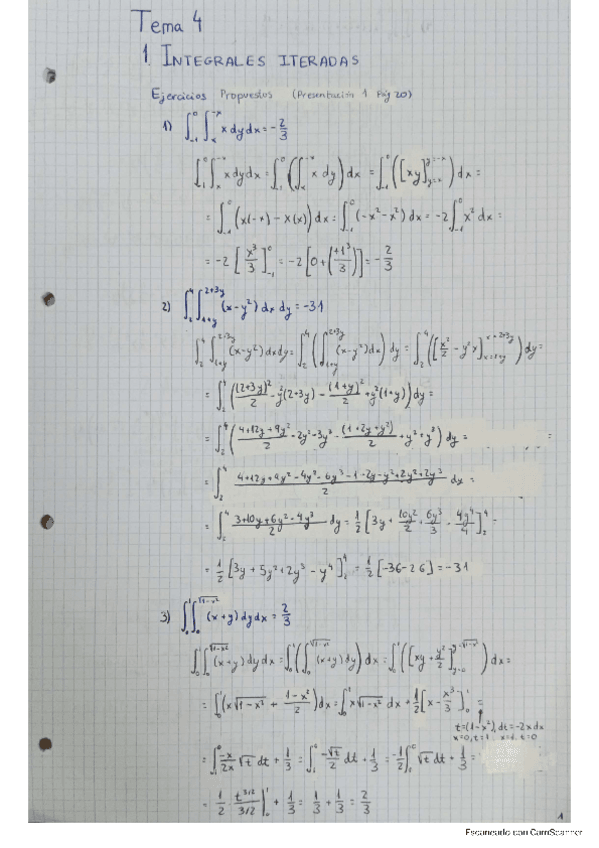 Tema 4
1. INTEGRALES ITERADAS
Ejercicios Propuestos (Presentación 1 Pág 20)
1) ∫_{-1}^{0} ∫_{x}^{-x} x dy dx = -2/3
∫_{-1}^{0} ∫_{x}^{-x} x dy dx = ∫_{-1}^{0} (∫_{x}^{-x} x dy) dx = ∫_{-1}^{0} ([xy]_{y=x}^{y=-x}) dx =
= ∫_{-1}^{0} (x(-x) - x(x)) dx = ∫_{-1}^{0} (-x² - x²) dx = -2 ∫_{-1}^{0} x² dx =
= -2 [x³/3]_{-1}^{0} = -2 [0 + (+1³/3)] = -2/3
2) ∫_{2}^{4} ∫_{1+y}^{2+3y} (x-y²) dx dy = -31
∫_{2}^{4} ∫_{1+y}^{2+3y} (x-y²) dx dy = ∫_{2}^{4} (∫_{1+y}^{2+3y} (x-y²) dx) dy = ∫_{2}^{4} ([x²/2 - y²x]_{x=1+y}^{x=2+3y}) dy =
= ∫_{2}^{4} ((2+3y)²/2 - y²(2+3y) - (1+y)²/2 + y²(1+y)) dy =
= ∫_{2}^{4} ((4+12y+9y²)/2 - 2y² - 3y³ - (1+2y+y²)/2 + y² + y³) dy = =
= ∫_{2}^{4} (4+12y+9y²-4y²-6y³-1-2y-y²+2y²+2y³)/2 dx =
= ∫_{2}^{4} (3+10y+6y²-4y³)/2 dy = 1/2 [3y + 10y²/2 + 6y³/3 - 4y⁴/4]_{2}^{4} =
= 1/2 [3y + 5y² + 2y³ - y⁴]_{2}^{4} = 1/2 [-36-26] = -31
3) ∫_{0}^{1} ∫_{0}^{√(1-x²)} (x+y) dy dx = 2/3
∫_{0}^{1} ∫_{0}^{√(1-x²)} (x+y) dy dx = ∫_{0}^{1} (∫_{0}^{√(1-x²)} (x+y) dy) dx = ∫_{0}^{1} ([xy + y²/2]_{y=0}^{y=√(1-x²)}) dx =
= ∫_{0}^{1} (x√(1-x²) + (1-x²)/2) dx = ∫_{0}^{1} x√(1-x²) dx + 1/2 [x - x³/3]_{0}^{1} =
t=(1-x²), dt=-2x dx
x=0, t=1 x=1, t=0
= ∫_{1}^{0} -x/2x √t dt + 1/3 = ∫_{1}^{0} -√t/2 dt + 1/3 = -1/2 ∫_{1}^{0} √t dt + 1/3 =
= 1/2 · t^{3/2}/(3/2) |_{0}^{1} + 1/3 = 1/3 + 1/3 = 2/3
1
Escaneado con CamScanner